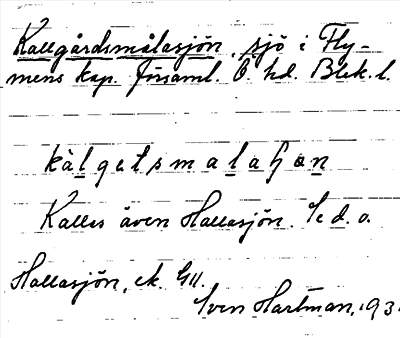 Kallgårdsmålasjön, sjö i Fly-
mens kap. församl. Ö. hd. Blek. l.
kàlgetsmalahọn
Kallas även Hallasjön. Se d. o.
Hallasjön, ek. G11.
Sven Hartman, 193